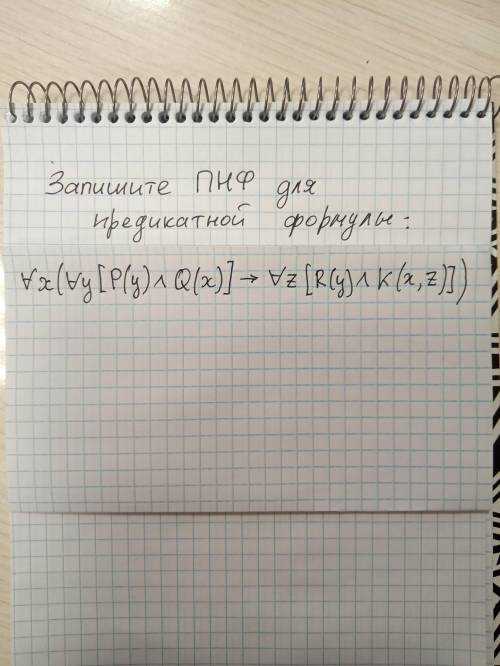 Запишите ПНФ для
предикатной формулы:
∀x(∀y[P(y)∧Q(x)]→∀z[R(y)∧K(x,z)])